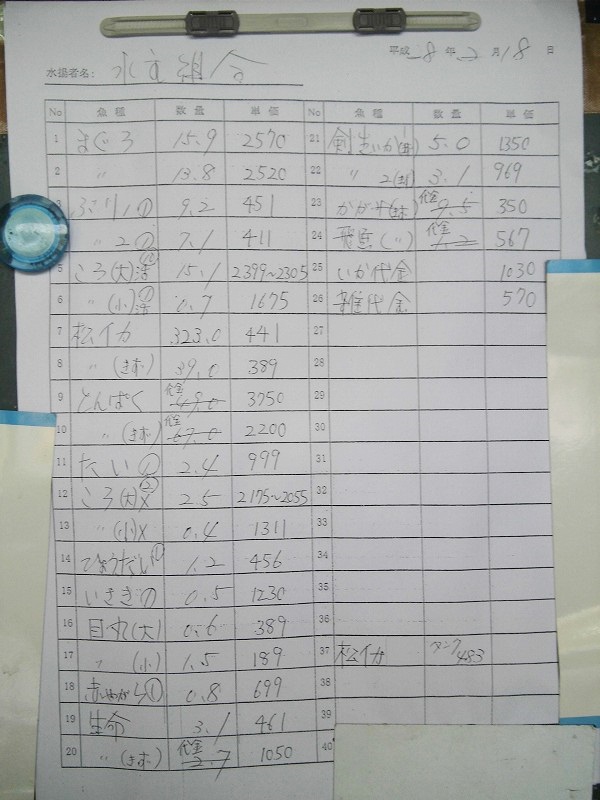 平成 28 年 2 月 18 日
水揚者名: 水産組合
No 魚種 数量 単価 No 魚種 数量 単価
1 まぐろ 15.9 2570 21 剣先いか 5.0 1350
2 〃 13.8 2520 22 〃 2 3.1 969
ぶり 1 9.2 451 23 9.5 代金 350
2 7.1 411 24 (〃) 代金 567
5 ころ(大)活 15.1 2399~2305 25 いか代金 1030
6 〃(小)活 0.7 1675 26 雑代金 570
7 松イカ 323.0 441 27
8 〃(きず) 39.0 389 28
9 とんぼく 代金 49.0 3750 29
10 〃(きず) 代金 67.0 2200 30
11 たい 2.4 999 31
12 ころ(大)X 2.5 2175~2055 32
13 〃(小)X 0.4 1311 33
14 ひょうだい 1.2 456 34
15 いさぎ 0.5 1230 35
16 目丸(大) 0.6 389 36
17 〃(小) 1.5 189 37 松イカ タンク 483
18 赤やがら① 0.8 699 38
19 3.1 461 39
20 〃(きず) 代金 2.7 1050 40